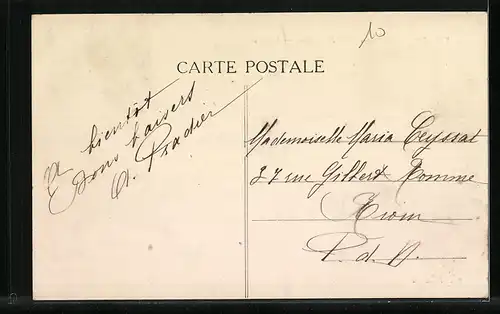 10
CARTE POSTALE
A bientôt
Bons baisers
A. Pradier
Mademoiselle Maria Ceyssat
37 rue Gilbert Romme
Riom
P. d. D.